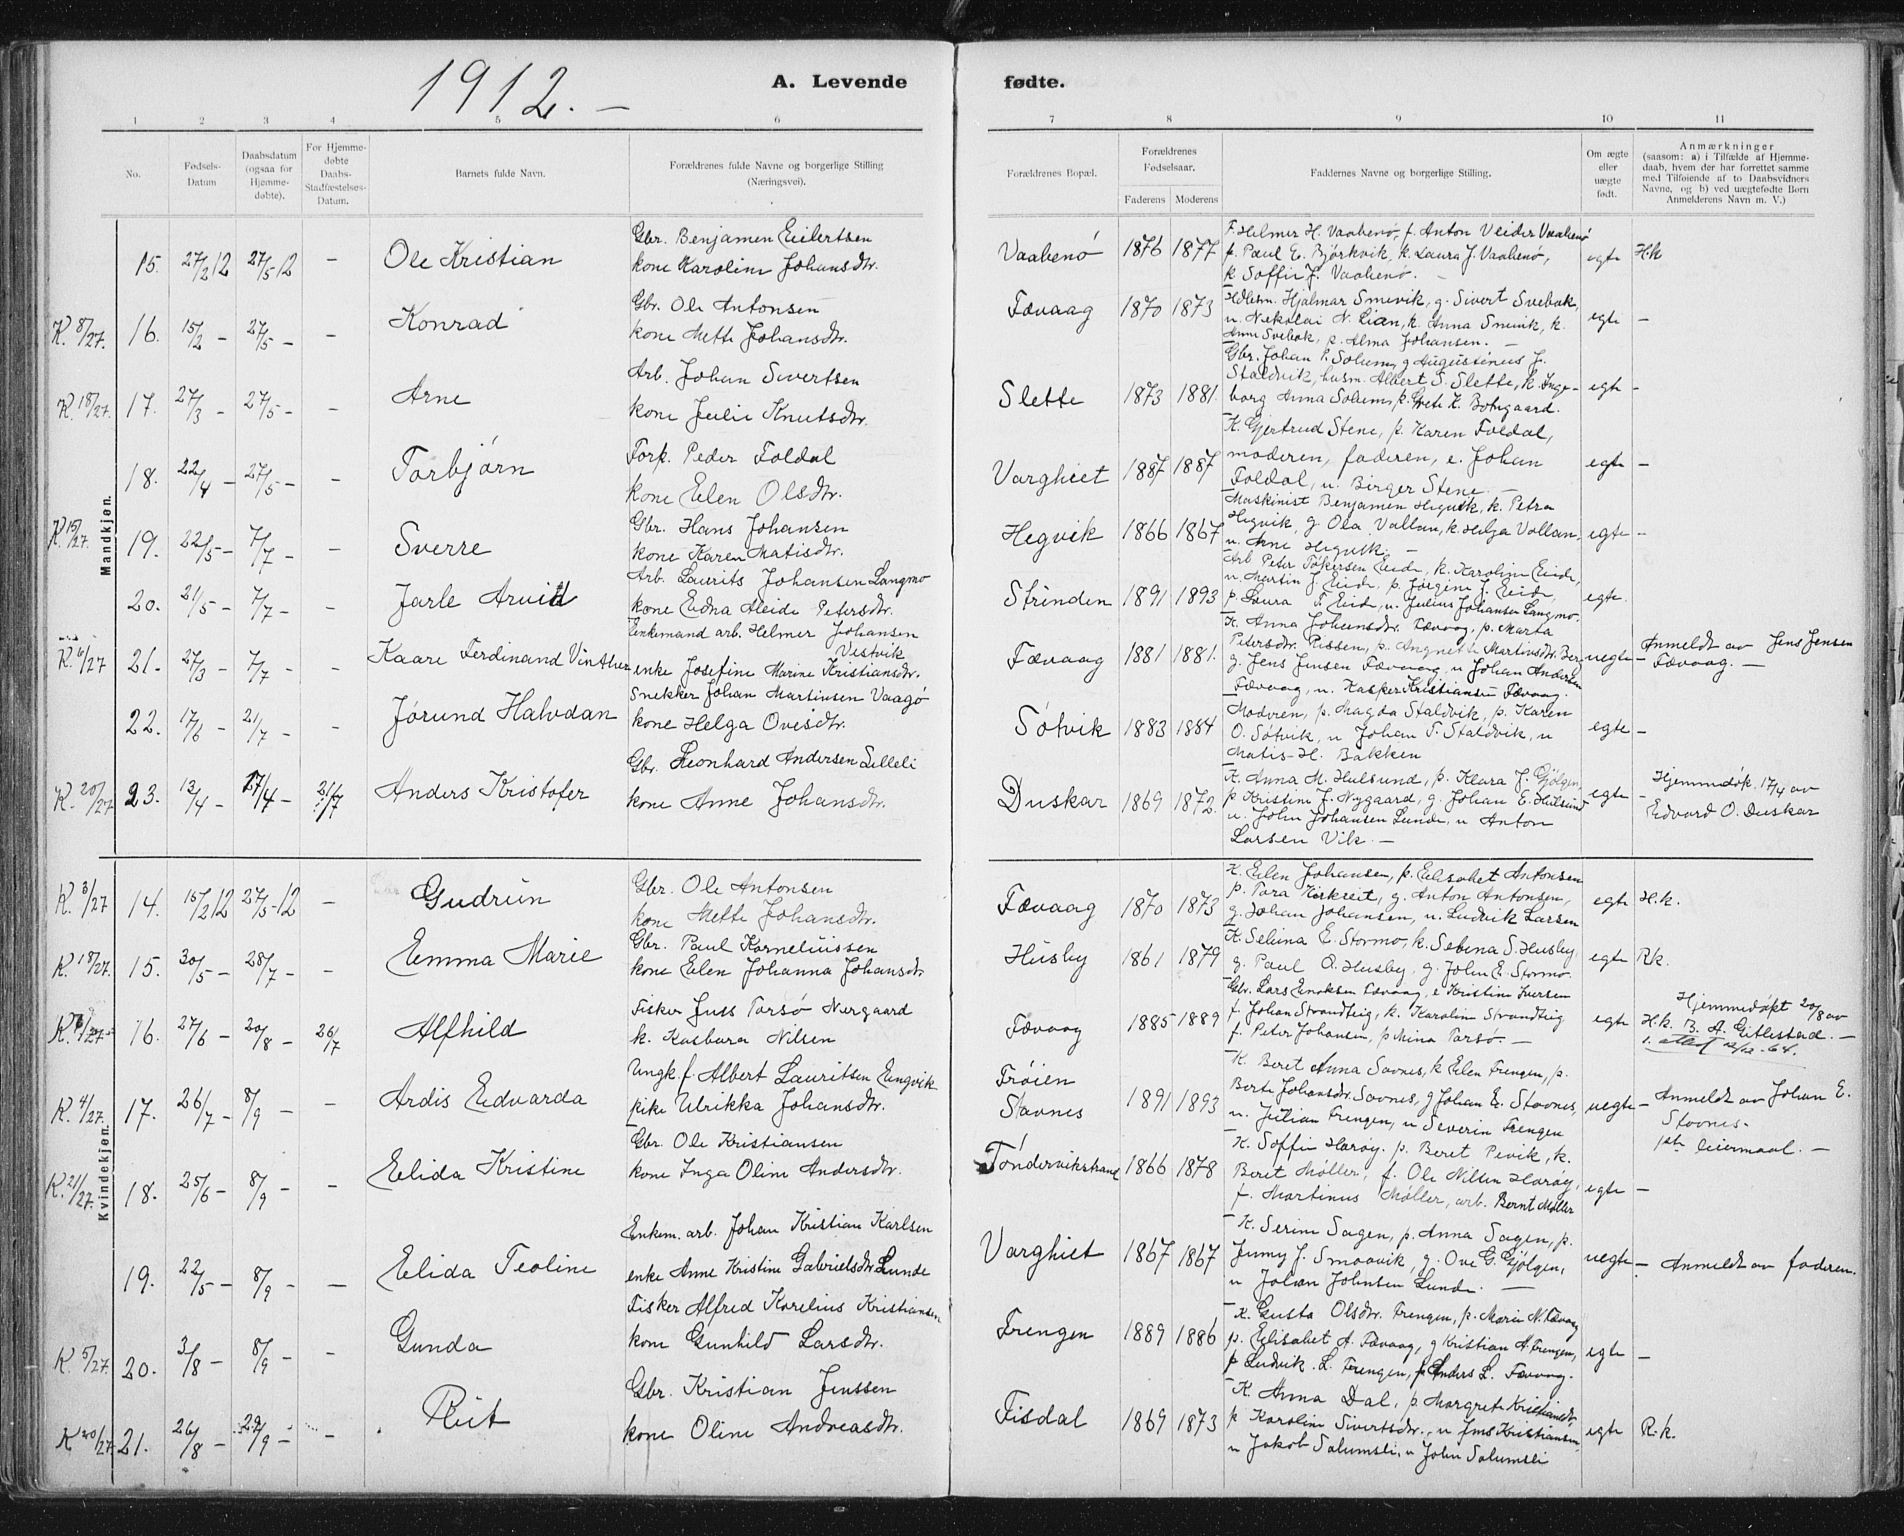 1912. —
A. Levende fødte.
1 2 3 4 5 6 7 8 9 10 11
No.
Fødsels-Datum
Daabsdatum (ogsaa for Hjemmedøbte).
For Hjemmedøbte Daabs-Stadfæstelses-Datum.
Barnets fulde Navn.
Forældrenes fulde Navne og borgerlige Stilling (Næringsvei).
Forældrenes Bopæl.
Forældrenes Fødselsaar.
Faderens Moderens
Faddernes Navne og borgerlige Stilling.
Om ægte eller uægte født.
Anmærkninger
(saasom: a) i Tilfælde af Hjemmedaab, hvem der har forrettet samme med Tilføiende af to Daabsvidners Navne, og b) ved uægtefødte Børn Anmelderens Navn m. V.)
Mandkjøn.
15. 27/2 12 27/5 12 — Ole Kristian
Gbr. Benjamen Eilertsen
kone Karoline Johansdtr.
Vaabenö 1876 1877
F. Helmer H. Vaabenö, f. Anton Veider Vaabenö
p. Paul E. Björkvik, k. Laura J. Vaabenö,
k. Soffie J. Vaabenö. —
egte H.k
K. 8/27. 16. 15/2 — 27/5 — — Konrad
Gbr. Ole Antonsen
kone Mette Johansdtr.
Tævaag 1870 1873
Hdlsm. Hjalmar Smevik, g. Sivert Svebak,
u. Nekolai N. Lian, k. Anna Smevik, k.
Anna Svebak, p. Alma Johansen. —
egte —
K. 18/27. 17. 27/3 — 27/5 — — Arne
Arb. Johan Sivertsen
kone Julie Knutsdtr.
Slette 1873 1881.
Gbr. Johan P. Solum, g Augustinus J.
Staldvik, husm. Albert S. Slette, k. Inge-
borg Anna Solum, p. Grete K. Botngaard.
egte —
18. 22/4 — 27/5 — — Torbjörn
Forp. Peder Foldal
kone Elen Olsdtr.
Varghiet 1887 1887
K. Gjertrud Stene, p. Karen Foldal,
moderen, faderen, e. Johan
Foldal, u. Birger Stene —
egte —
K. 15/27. 19. 22/5 — 7/7 — — Sverre
Gbr. Hans Johansen
kone Karen Matisdtr.
Hegvik 1866 1867
Maskinist Benjamen Hegvik, k. Petra
Hegvik, g. Ola Vallan, k. Helga Vallan,
u. Arne Hegvik. —
egte —
20. 21/5 — 7/7 — — Jarle Arvid
Arb. Laurits Johansen Langmo
kone Edna Aleide Petersdtr.
Strinden 1891 1893
Arb Peter Eide, k. Karoline Eide,
u. Martin J. Eide, p. Jörgine J. Eide,
p. Laura F. Eide, u. Julius Johansen Langmo.
egte.
K. 6/27 21. 27/3 — 7/7 — — Kaare Ferdinand Vinther
Enkemand arb. Helmer Johansen Vestvik
enke Josefine Marine Kristiansdtr.
Tævaag 1881 1881.
K. Anna Johansdtr. Tævaag, p. Marta
Petersdtr. Rissen, p. Martinsdtr.
g. Jens Jensen Tævaag, u Johan Andersen
Tævaag, u. Kasper Kristiansen Tævaag.
uegte —
Anmeldt av Jens Jensen
Tævaag. —
22. 17/6 — 21/7 — — Jörund Halvdan
Snekker Johan Martinsen Vaagö
kone Helga Ovesdtr.
Sötvik 1883 1884
Moderen, p. Magda Staldvik, p. Karen
O. Søtvik, u Johan P. Staldvik, u
Matis H. Bakken
egte —
K. 20/27. 23. 13/4 — 17/4 — 21/7 Anders Kristofer
Gbr. Leonhard Andersen Lilleli
kone Anne Johansdtr.
Duskar 1869 1872.
K. Anna M. Hulsund, p. Klara J. Gjölgen,
p Kristine J. Nygaard, g. Johan E. Hulsund
u. John Johansen Lunde, u Anton
Larsen Vik —
egte —
Hjemmedøk 17/4 av
Edvard O. Duskar
Kvindekjøn.
K. 8/27 14. 15/2 12 27/5-12 — Gudrun
Gbr. Ole Antonsen
kone Mette Johansdtr.
Tævaag 1870 1873
K. Elen Johansen, p. Elisabet Antonsen
p. Tora Kirkreit, g. Anton Antonsen,
g. Johan Johansen, u. Ludvik Larsen
egte H.k.
K. 18/27. 15. 30/5 — 28/7 — — Emma Marie
Gbr. Paul Korneliussen
kone Elen Johanna Johansdtr
Husby 1861 1879
K. Selina E. Stormo, k. Selina S. Husby
g. Paul O. Husby, g. John E. Stormo
egte Rk.
K. 16. 27/6 — 20/8 — Alfhild
Fisker Jens Tarsö Nergaard
k. Kasbara Nilsen
Tævaag 1885 1889
Gbr. Lars Enoksen Tævaag, e Kristine Iversen
f. Johan Strandteig, k. Karoline Strandteig
f. Peter Johansen, p Mina Tarsö. —
egte
Hjemmedøpt 20/8 av
H.k. B. A. Gitlestad. —
1. attest 12/12-64.
K. 4/27. 17. 26/7 — 8/9 — — Ardis Edvarda
Ungk. f. Albert Lauritsen Engvik
pike Ulrikka Johansdtr.
Fröien
Stavnes 1891 1893
K. Beret Anna Savnes, k Elen Frengen, p.
Berte Johansdtr. Savnes, g Johan E. Stavnes,
u. Julian Frengen, u Severin Frengen
uegte —
Anmeldt av Johan E.
Stovnes.
1ste leiermaal. —
K. 21/27. 18. 25/6 — 8/9 — — Elida Kristine
Gbr. Ole Kristiansen
kone Inga Oline Andersdtr.
Töndervikstrand 1866 1878
K. Soffie Haröy. p. Beret Pevik, k.
Beret Møller, f. Ole Nilsen Haröy,
f. Martinus Møller, arb. Bernt Møller
egte —
19. 22/5 — 8/9 — — Elida Teoline
Enkem. arb. Johan Kristian Karlsen
enke Anne Kristine Gabrielsdtr. Lunde
Varghiet 1867 1867
K. Serine Sagen, p. Anna Sagen, p.
Jenny J. Smaavik, g. Ove G. Gjölgen,
u Johan Johnsen Lunde —
uegte —
Anmeldt av faderen.
K. 5/27. 20. 3/8 — 8/9 — — Gunda
Fisker Alfred Korelius Kristiansen
kone Gunhild Larsdtr.
Frengen 1889 1886
K. Gusta Olsdtr. Frengen, p. Marie N. Tævaag
p. Elisabet A. Tævaag, g Kristian A. Frengen,
p Ludvik L. Frengen, f. Anders L. Tævaag.
egte —
K 20/27. 21. 26/8 — 29/9 — — Rut
Gbr. Kristian Jenssen
kone Oline Andreasdtr.
Fisdal 1869 1873
K. Anna Dal, p Margrete Kristiansdtr
p Karoline Sivertsdtr., u Jens Kristiansen
u Jakob Salumsli, u John Salumsli
egte R.k.